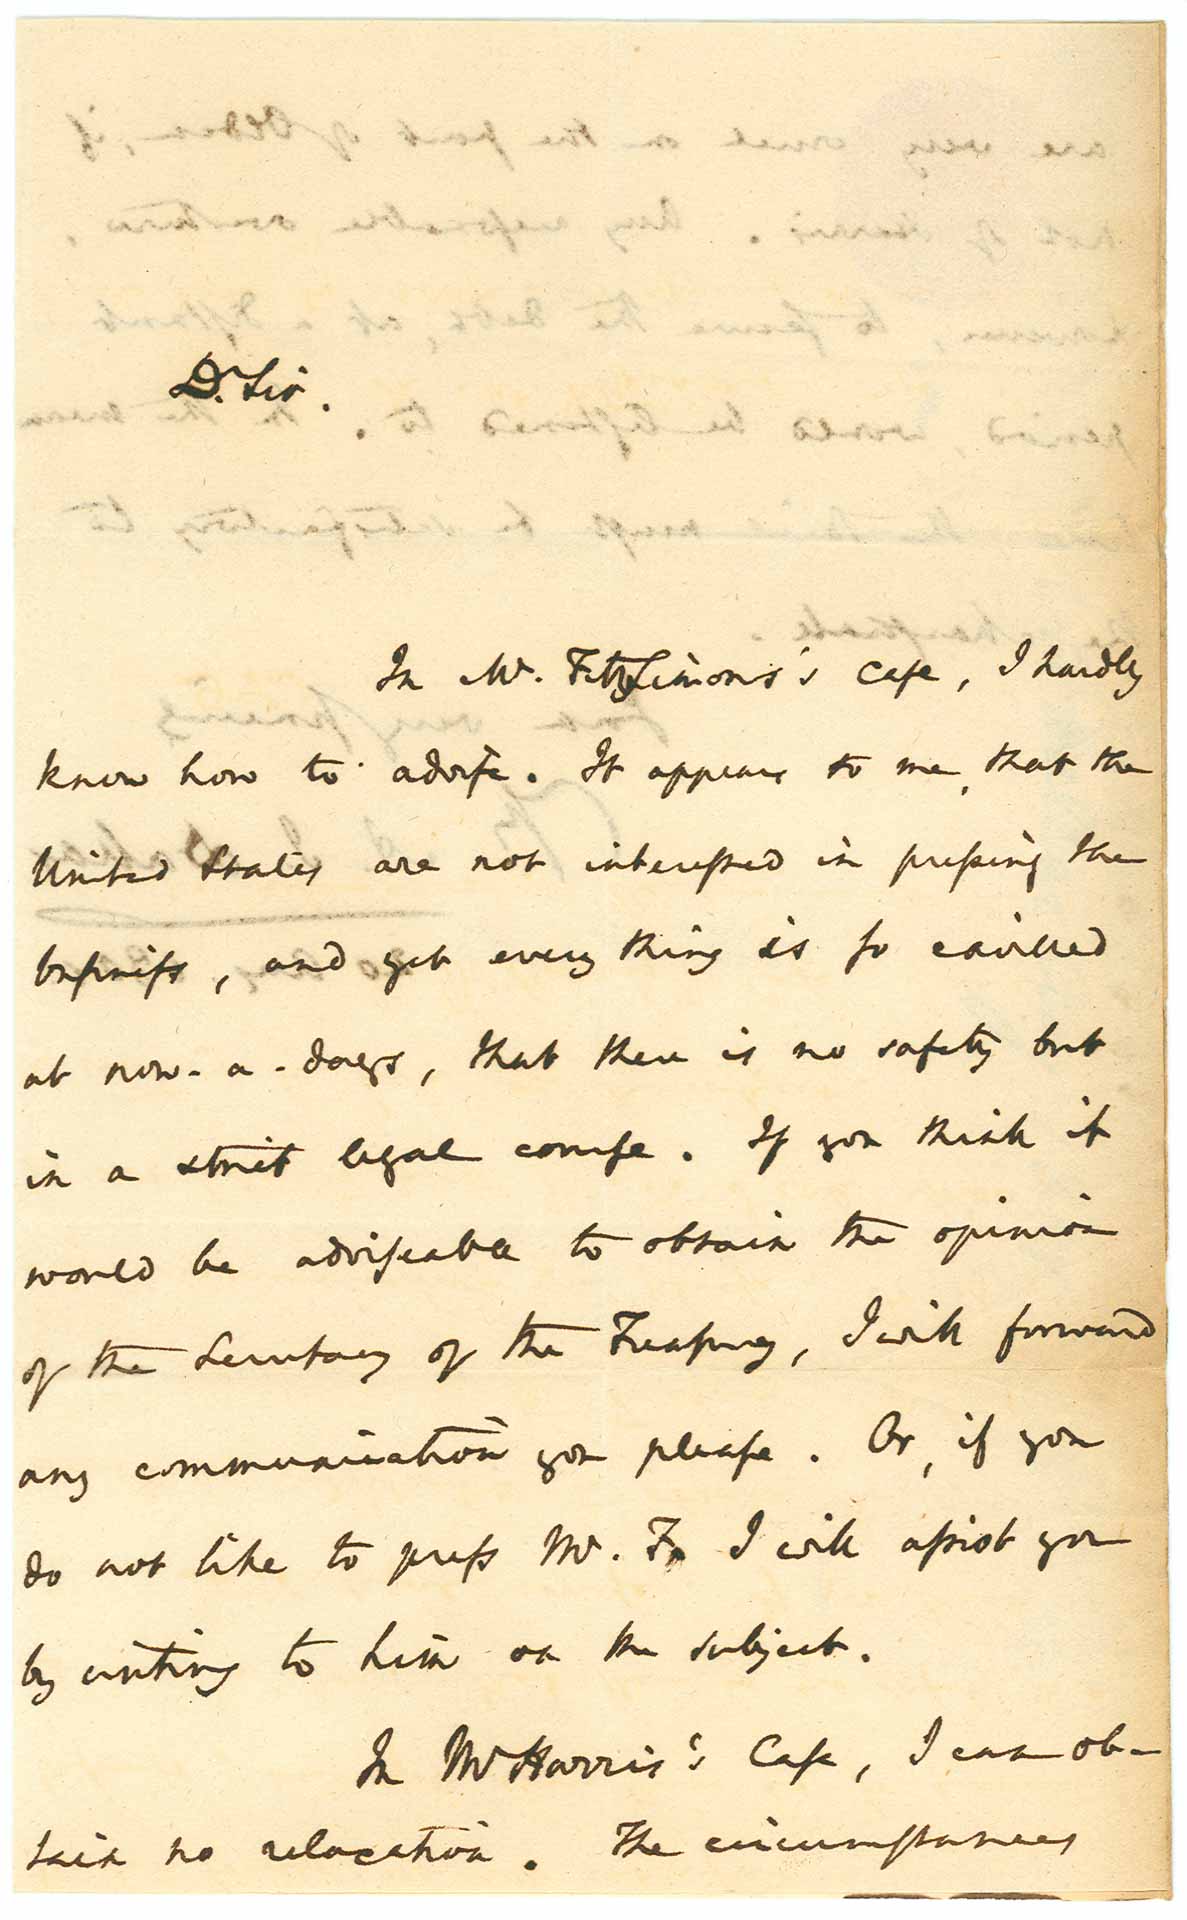 Dr. Sir.
In Mr. FitzSimons's Caſe, I hardly
know how to adviſe. It appears to me, that the
United States are not intereſted in preſsing the
buſineſs, and yet every thing is ſo cavilled
at now-a-days, that there is no safety but
in a strict legal courſe. If you think it
would be adviſeable to obtain the opinion
of the Secretary of the Treaſury, I will forward
any communication you pleaſe. Or, if you
do not like to preſs Mr. F. I will aſsist you
by writing to him on the subject.
In Mr Harris's Caſe, I can ob-
tain no relaxation. The circumſtances